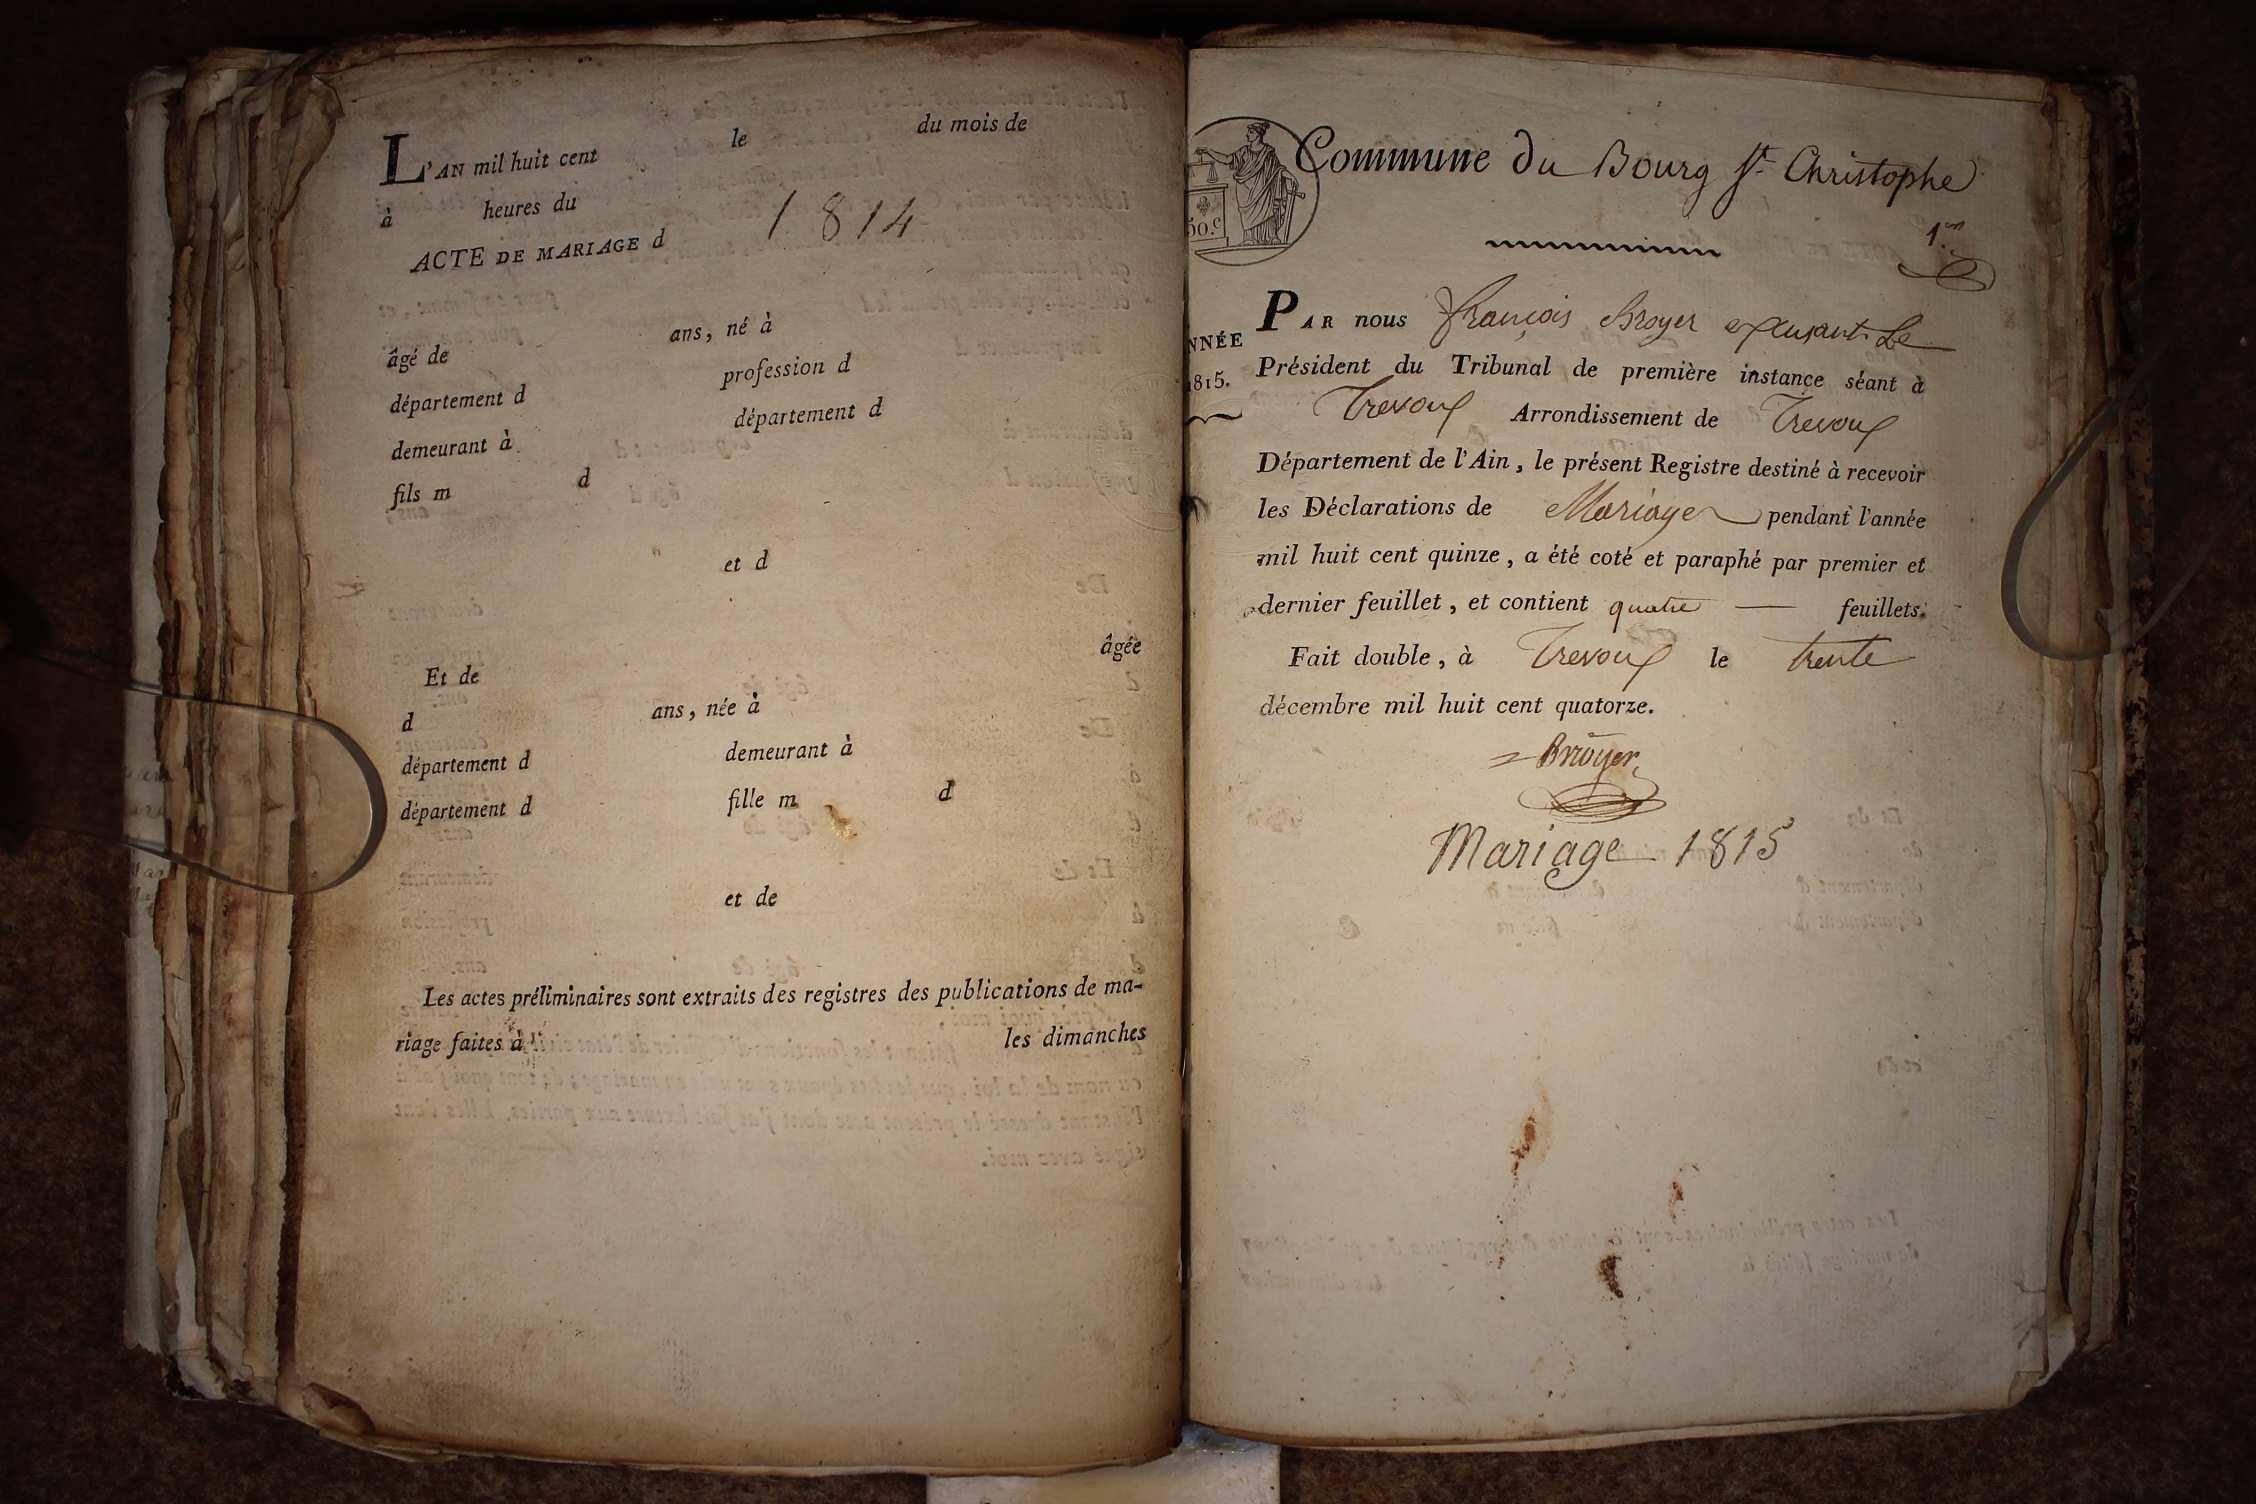 L'AN mil huit cent le du mois de
à heures du
1814
ACTE DE MARIAGE d
âgé de ans, né à
département d profession d
demeurant à département d
fils m d
et d
Et de âgée
d ans, née à
département d demeurant à
département d fille m d
et de
Les actes préliminaires sont extraits des registres des publications de ma-
riage faites à les dimanches
Commune du Bourg St Christophe
50.c
1.er
NNÉE
1815.
PAR nous François Broyer exerçant Le
Président du Tribunal de première instance séant à
Trevoux Arrondissement de Trevoux
Département de l'Ain, le présent Registre destiné à recevoir
les Déclarations de Mariage pendant l'année
mil huit cent quinze, a été coté et paraphé par premier et
dernier feuillet, et contient quatre — feuillets.
Fait double, à Trevoux le trente
décembre mil huit cent quatorze.
Broyer
Mariage 1815